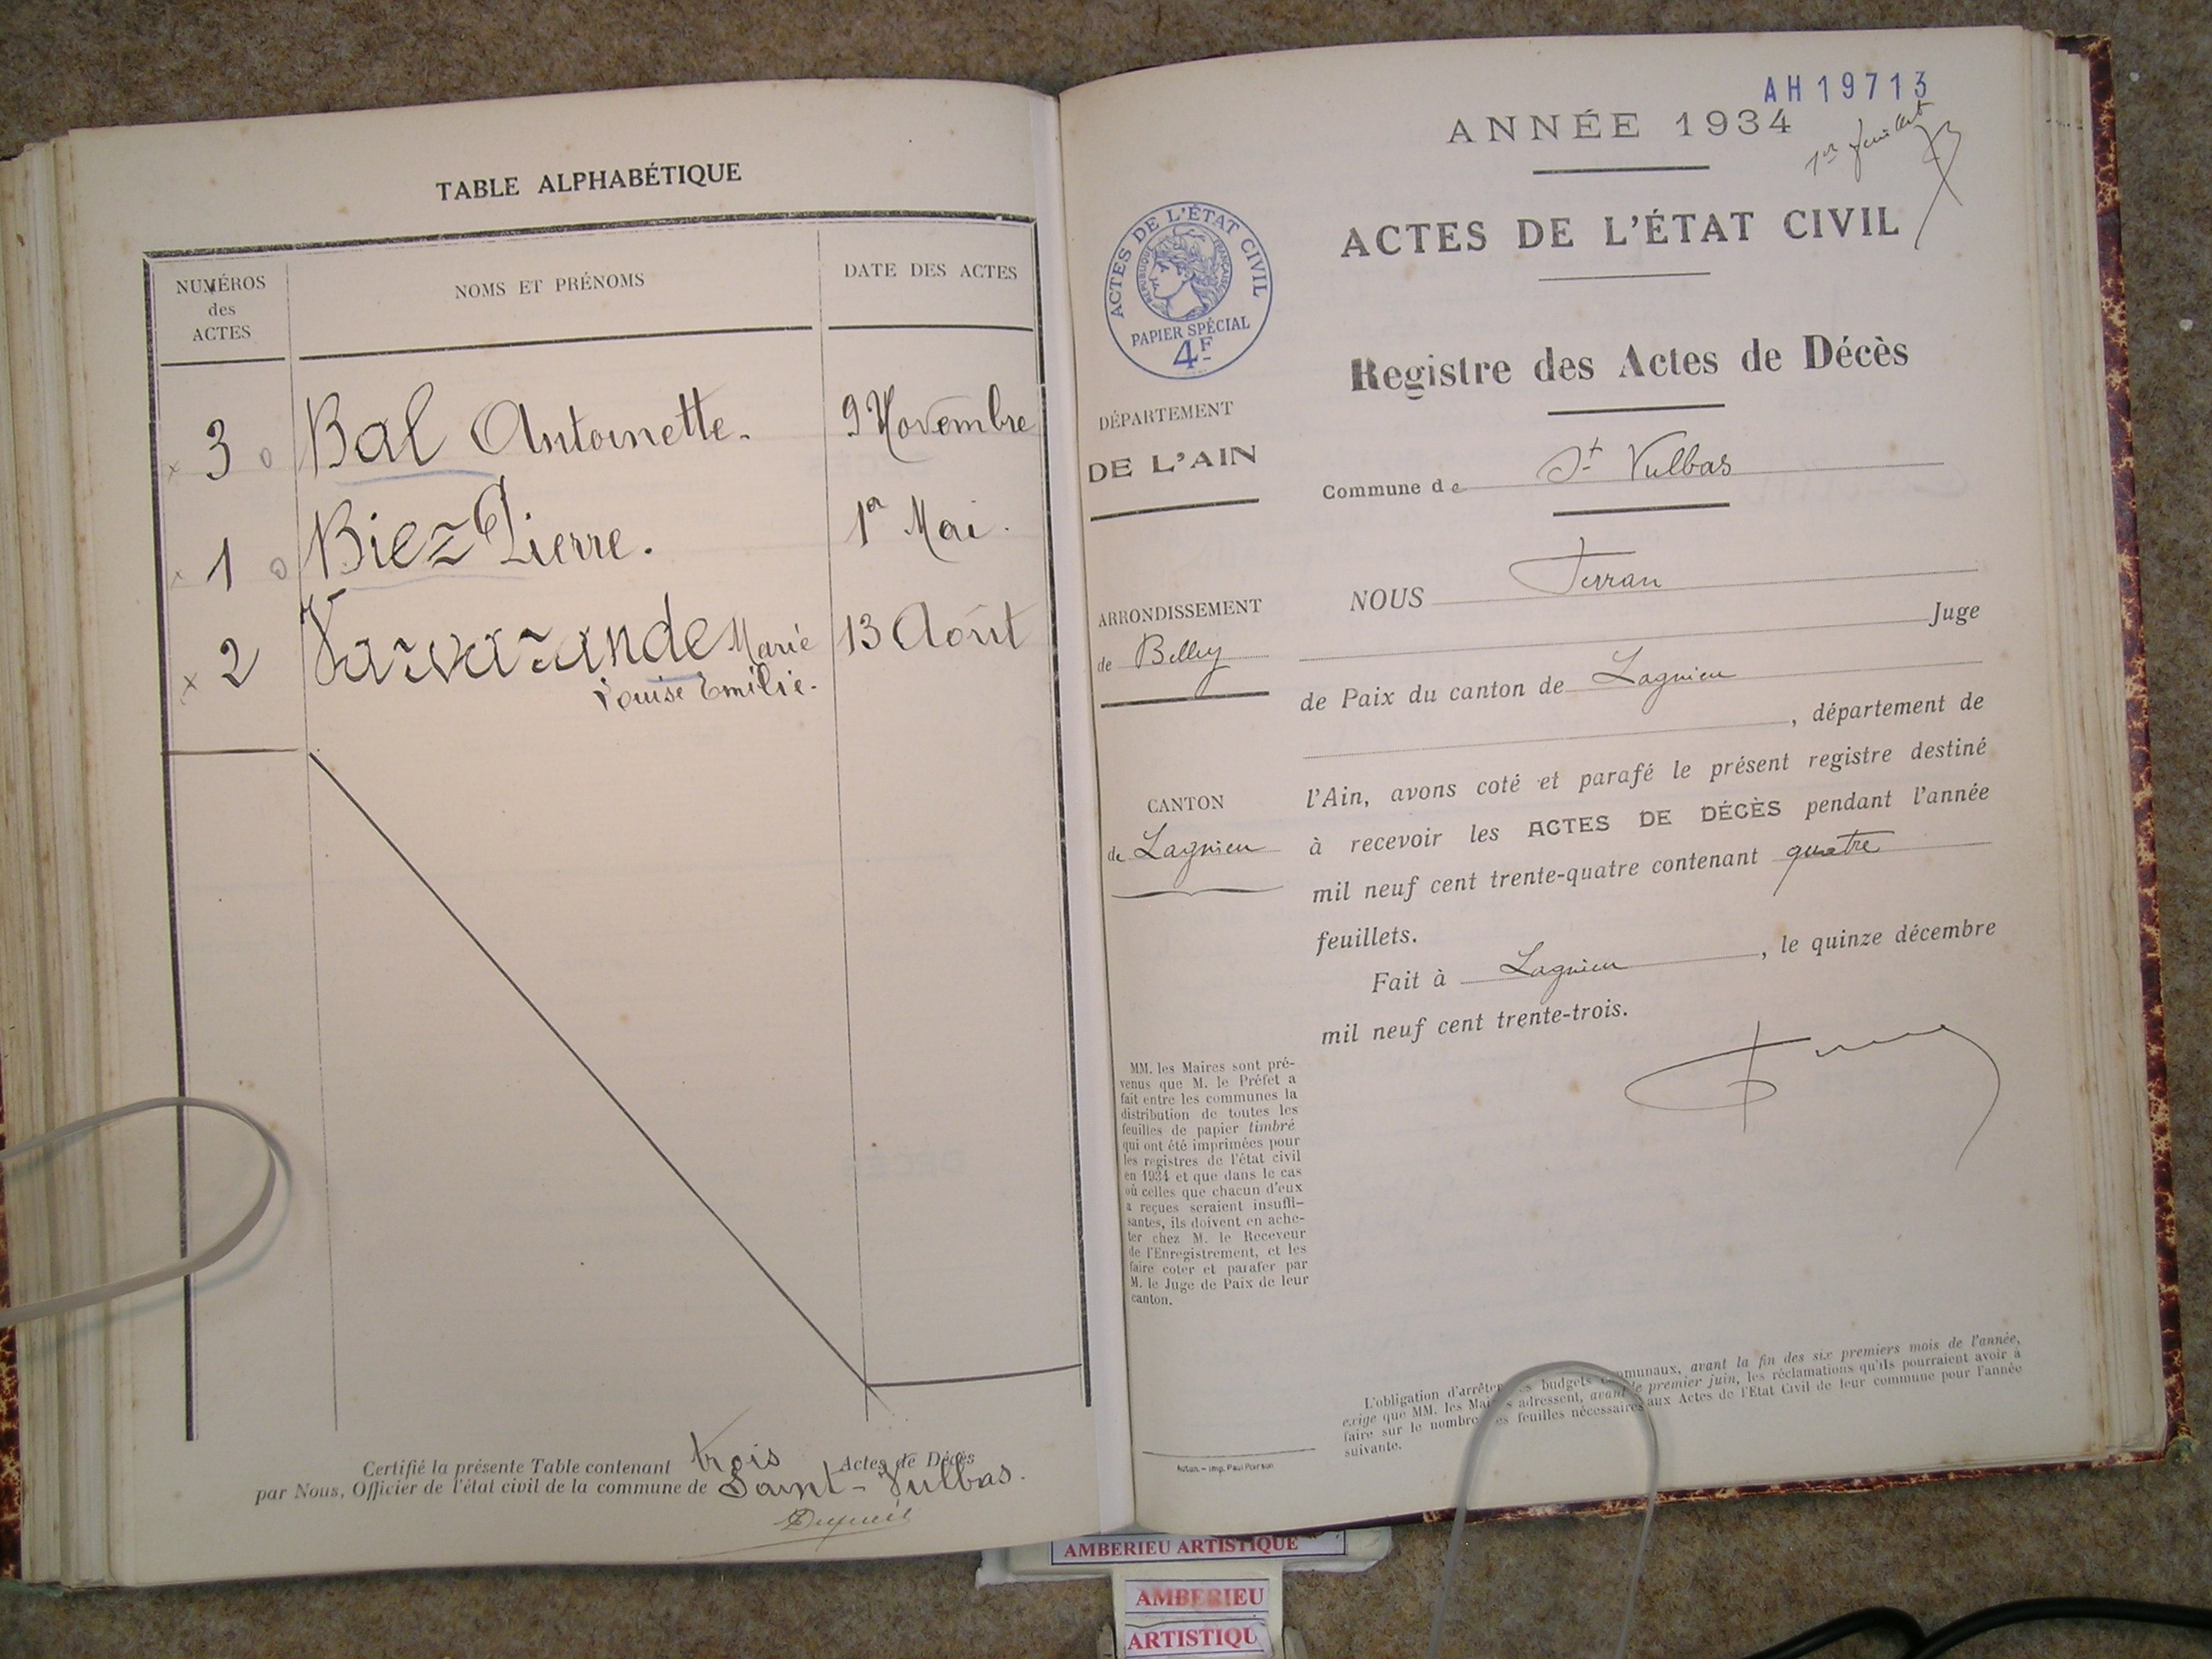 TABLE ALPHABÉTIQUE
NUMÉROS
des
ACTES
NOMS ET PRÉNOMS
DATE DES ACTES
x 3 o Bal Antoinette. 9 Novembre
x 1 o Biez Pierre. 1er Mai.
x 2 Varvarande Marie 13 Août
Louise Emilie.
Certifié la présente Table contenant trois Actes de Décès
par Nous, Officier de l'état civil de la commune de Saint-Vulbas.
AH19713
ANNÉE 1934
1er feuillet
ACTES DE L'ÉTAT CIVIL
ACTES DE L'ÉTAT CIVIL
RÉPUBLIQUE FRANÇAISE
PAPIER SPÉCIAL
4F
Registre des Actes de Décès
DÉPARTEMENT
DE L'AIN
Commune de St Vulbas
ARRONDISSEMENT
de Belley
NOUS Ferran
Juge
de Paix du canton de Lagnieu
, département de
CANTON
de Lagnieu
l'Ain, avons coté et parafé le présent registre destiné
à recevoir les ACTES DE DÉCÈS pendant l'année
mil neuf cent trente-quatre contenant quatre
feuillets.
Fait à Lagnieu, le quinze décembre
mil neuf cent trente-trois.
MM. les Maires sont pré-
venus que M. le Préfet a
fait entre les communes la
distribution de toutes les
feuilles de papier timbré
qui ont été imprimées pour
les registres de l'état civil
en 1934 et que dans le cas
où celles que chacun d'eux
a reçues seraient insuffi-
santes, ils doivent en ache-
ter chez M. le Receveur
de l'Enregistrement, et les
faire coter et parafer par
M. le Juge de Paix de leur
canton.
L'obligation d'arrêter les budgets communaux, avant la fin des six premiers mois de l'année,
exige que MM. les Maires adressent, avant le premier juin, les réclamations qu'ils pourraient avoir à
faire sur le nombre des feuilles nécessaires aux Actes de l'Etat Civil de leur commune pour l'année
suivante.
Autun. – Imp. Paul Poirson
AMBERIEU ARTISTIQUE
AMBERIEU
ARTISTIQU